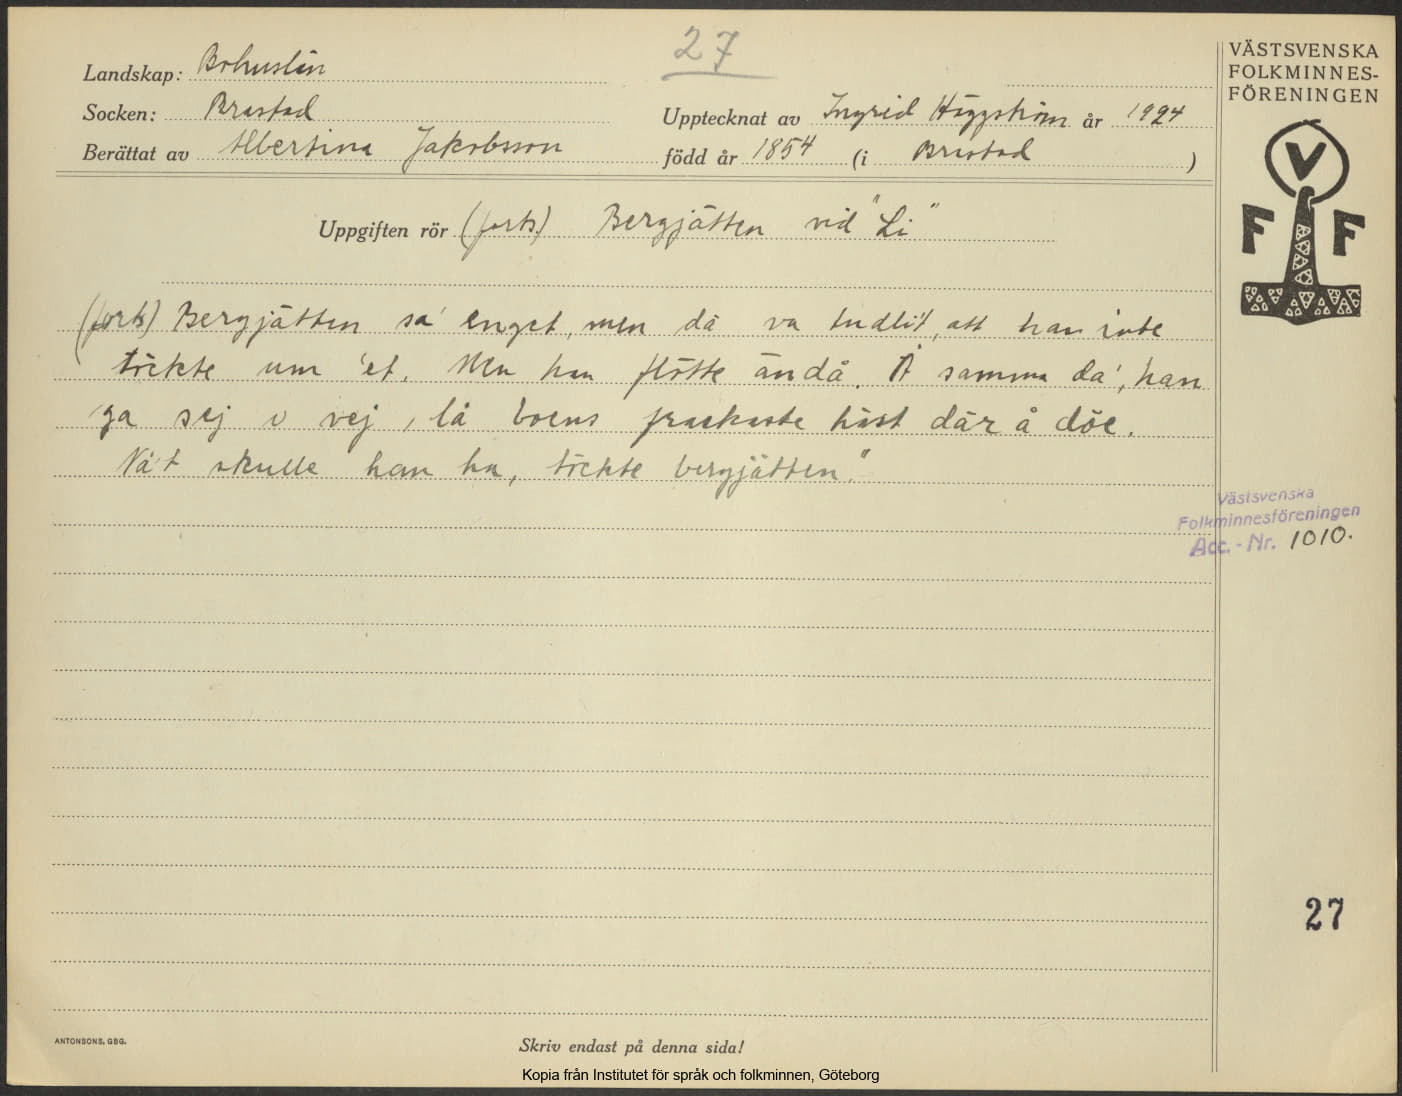 27
Landskap: Bohuslän
Socken: Brastad
Upptecknat av Ingrid Häggström år 1924
Berättat av Albertina Jakobsson född år 1854 (i Brastad)
Uppgiften rör (forts) Bergjätten vid "Li"
(forts) Bergjätten sa' enget, men då va tudlit, att han inte
töckte um 'et. Men han flötte ändå. Å samma da', han
ga sej i vej, lå boens frackaste häst där å döe.
Nå't skulle han ha, töckte bergjätten."
VÄSTSVENSKA
FOLKMINNES-
FÖRENINGEN
V
F F
Västsvenska
Folkminnesföreningen
Acc.-Nr. 1010.
27
ANTONSONS, GBG.
Skriv endast på denna sida!
Kopia från Institutet för språk och folkminnen, Göteborg